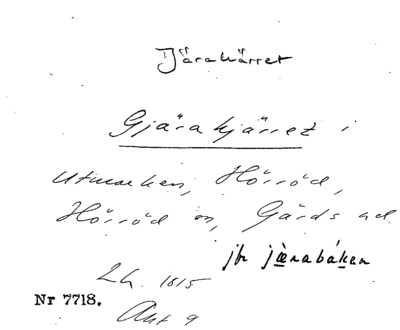 Järakärret
Gjärakjärret i
Utmarken, Hörröd,
Hörröd sn, Gärds hd
jfr jæ̀rabákan
Lh. 1815
Nr 7718.
Akt 9